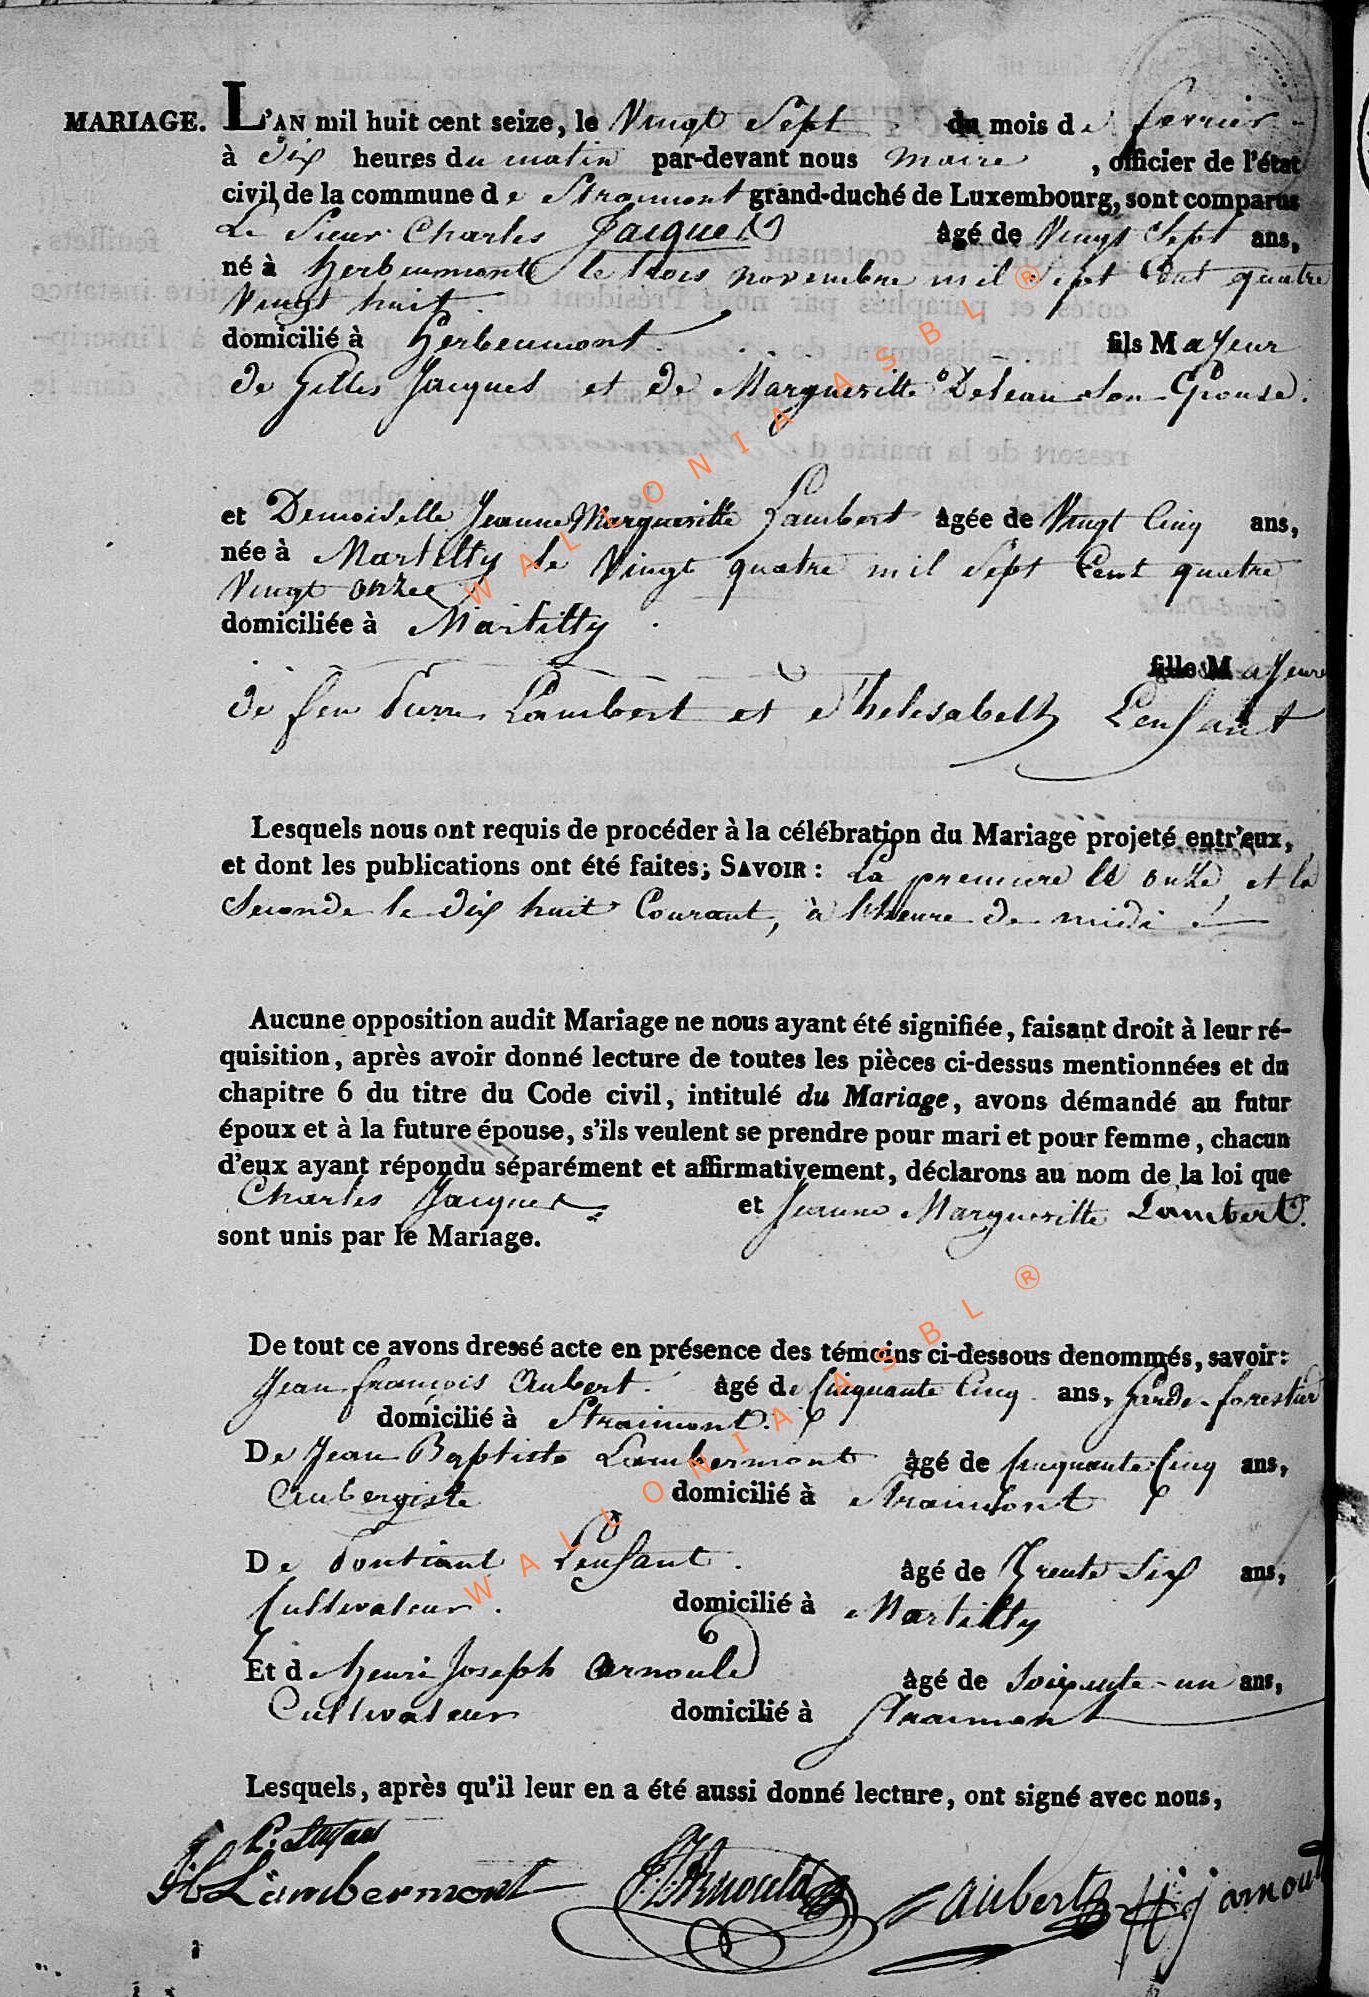 MARIAGE. L'AN mil huit cent seize, le Vingt Sept du mois de fevrier
à dix heures du matin par-devant nous maire, officier de l'état
civil de la commune de Straimont grand-duché de Luxembourg, sont comparus
Le Sieur Charles Jacques Agé de Vingt Sept ans,
né à herbeumont le trois novembre mil sept Cent quatre
Vingt huit.
domicilié à Herbeumont fils Majeur
de Gilles Jacques et de Margueritte Deleau son Epouse.
et Demoiselle Jeanne Margueritte Lambert Agée de Vingt Cinq ans,
née à Martilly le Vingt quatre mil Sept Cent quatre
Vingt onze
domiciliée à Martilly.
fille Majeure
de feu Pierre Lambert et d'helesabeth Lenfant
Lesquels nous ont requis de procéder à la célébration du Mariage projeté entr'eux,
et dont les publications ont été faites; SAVOIR : La premiere le onze, et la
Seconde le dix huit Courant, à l'heure de midi
Aucune opposition audit Mariage ne nous ayant été signifiée, faisant droit à leur ré-
quisition, après avoir donné lecture de toutes les pièces ci-dessus mentionnées et du
chapitre 6 du titre du Code civil, intitulé du Mariage, avons démandé au futur
époux et à la future épouse, s'ils veulent se prendre pour mari et pour femme, chacun
d'eux ayant répondu séparément et affirmativement, déclarons au nom de la loi que
Charles Jacques et Jeanne Margueritte Lambert.
sont unis par le Mariage.
De tout ce avons dressé acte en présence des témoins ci-dessous denommés, savoir:
Jean françois Aubert. Agé de Cinquante Cinq ans, Garde-forestier
domicilié à Straimont.
De Jean Baptiste Lambermont Agé de Cinquante Cinq ans,
Aubergiste domicilié à Straimont
De Pontiant Lenfant. Agé de Trente Six ans,
Cultivateur. domicilié à Martilly
Et de henri Joseph Arnould Agé de Soixante-un ans,
Cultivateur domicilié à Straimont
Lesquels, après qu'il leur en a été aussi donné lecture, ont signé avec nous,
P. Lenfant
Lambermont Arnould Aubert hj arnould
WALLONIA ASBL ®
WALLONIA ASBL ®